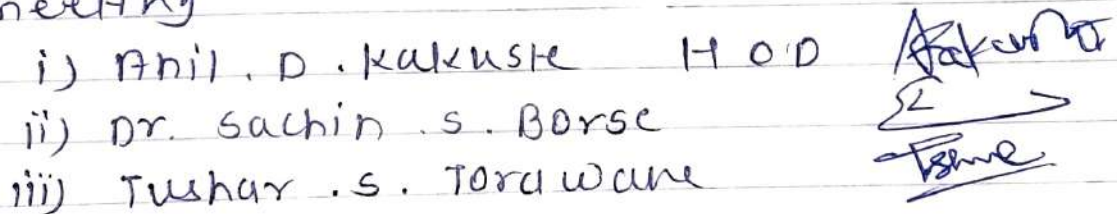 i) Anil . D . Kakuste H O D
ii) Dr. Sachin . S . Borse
iii) Tushar . S . Torawane